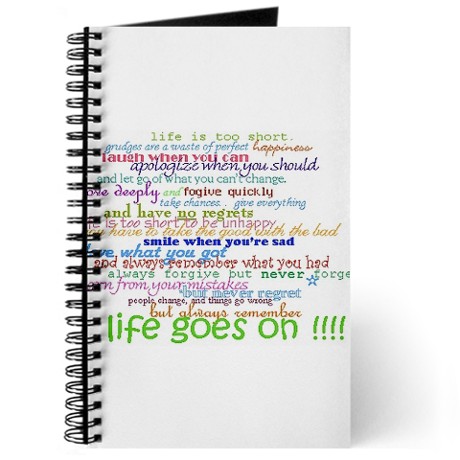 life is too short.
grudges are a waste of perfect happiness
laugh when you can
apologize when you should
and let go of what you can't change.
ove deeply and fogive quickly
take chances.. give everything
and have no regrets
e is too short to be unhappy
you have to take the good with the bad
smile when you're sad
ove what you got
and always remember what you had
always forgive but never forge
rn from your mistakes
but never regret
people change, and things go wrong
but always remember
life goes on !!!!